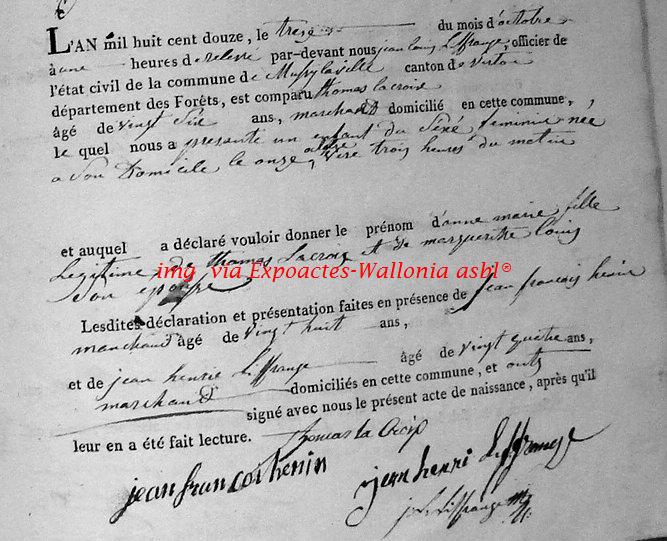 L'AN mil huit cent douze, le treze du mois d'octobre
à une heures de relevé par-devant nous jean louis Liffrange, officier de
l'état civil de la commune de Mussylaville canton de virton
département des Forêts, est comparu thomas lacroix
âgé de vingt six ans, marchand domicilié en cette commune,
le quel nous a presenté un enfant du sexé feminin née
a son Domicile le onze vere trois heures du matin
et auquel a déclaré vouloir donner le prénom d'anne marie fille
Legitime de thomas Lacroix et de margueritte louis
son epouse
img via Expoactes-Wallonia asbl®
Lesdites déclaration et présentation faites en présence de jean francois henin
marchand âgé de vingt huit ans,
et de jean henrie Liffrange âgé de vingt quatre ans,
marchand domiciliés en cette commune, et onts
signé avec nous le présent acte de naissance, après qu'il
leur en a été fait lecture. thomas la Croix
jean francois henin jean henri Liffrange
j L Liffrange